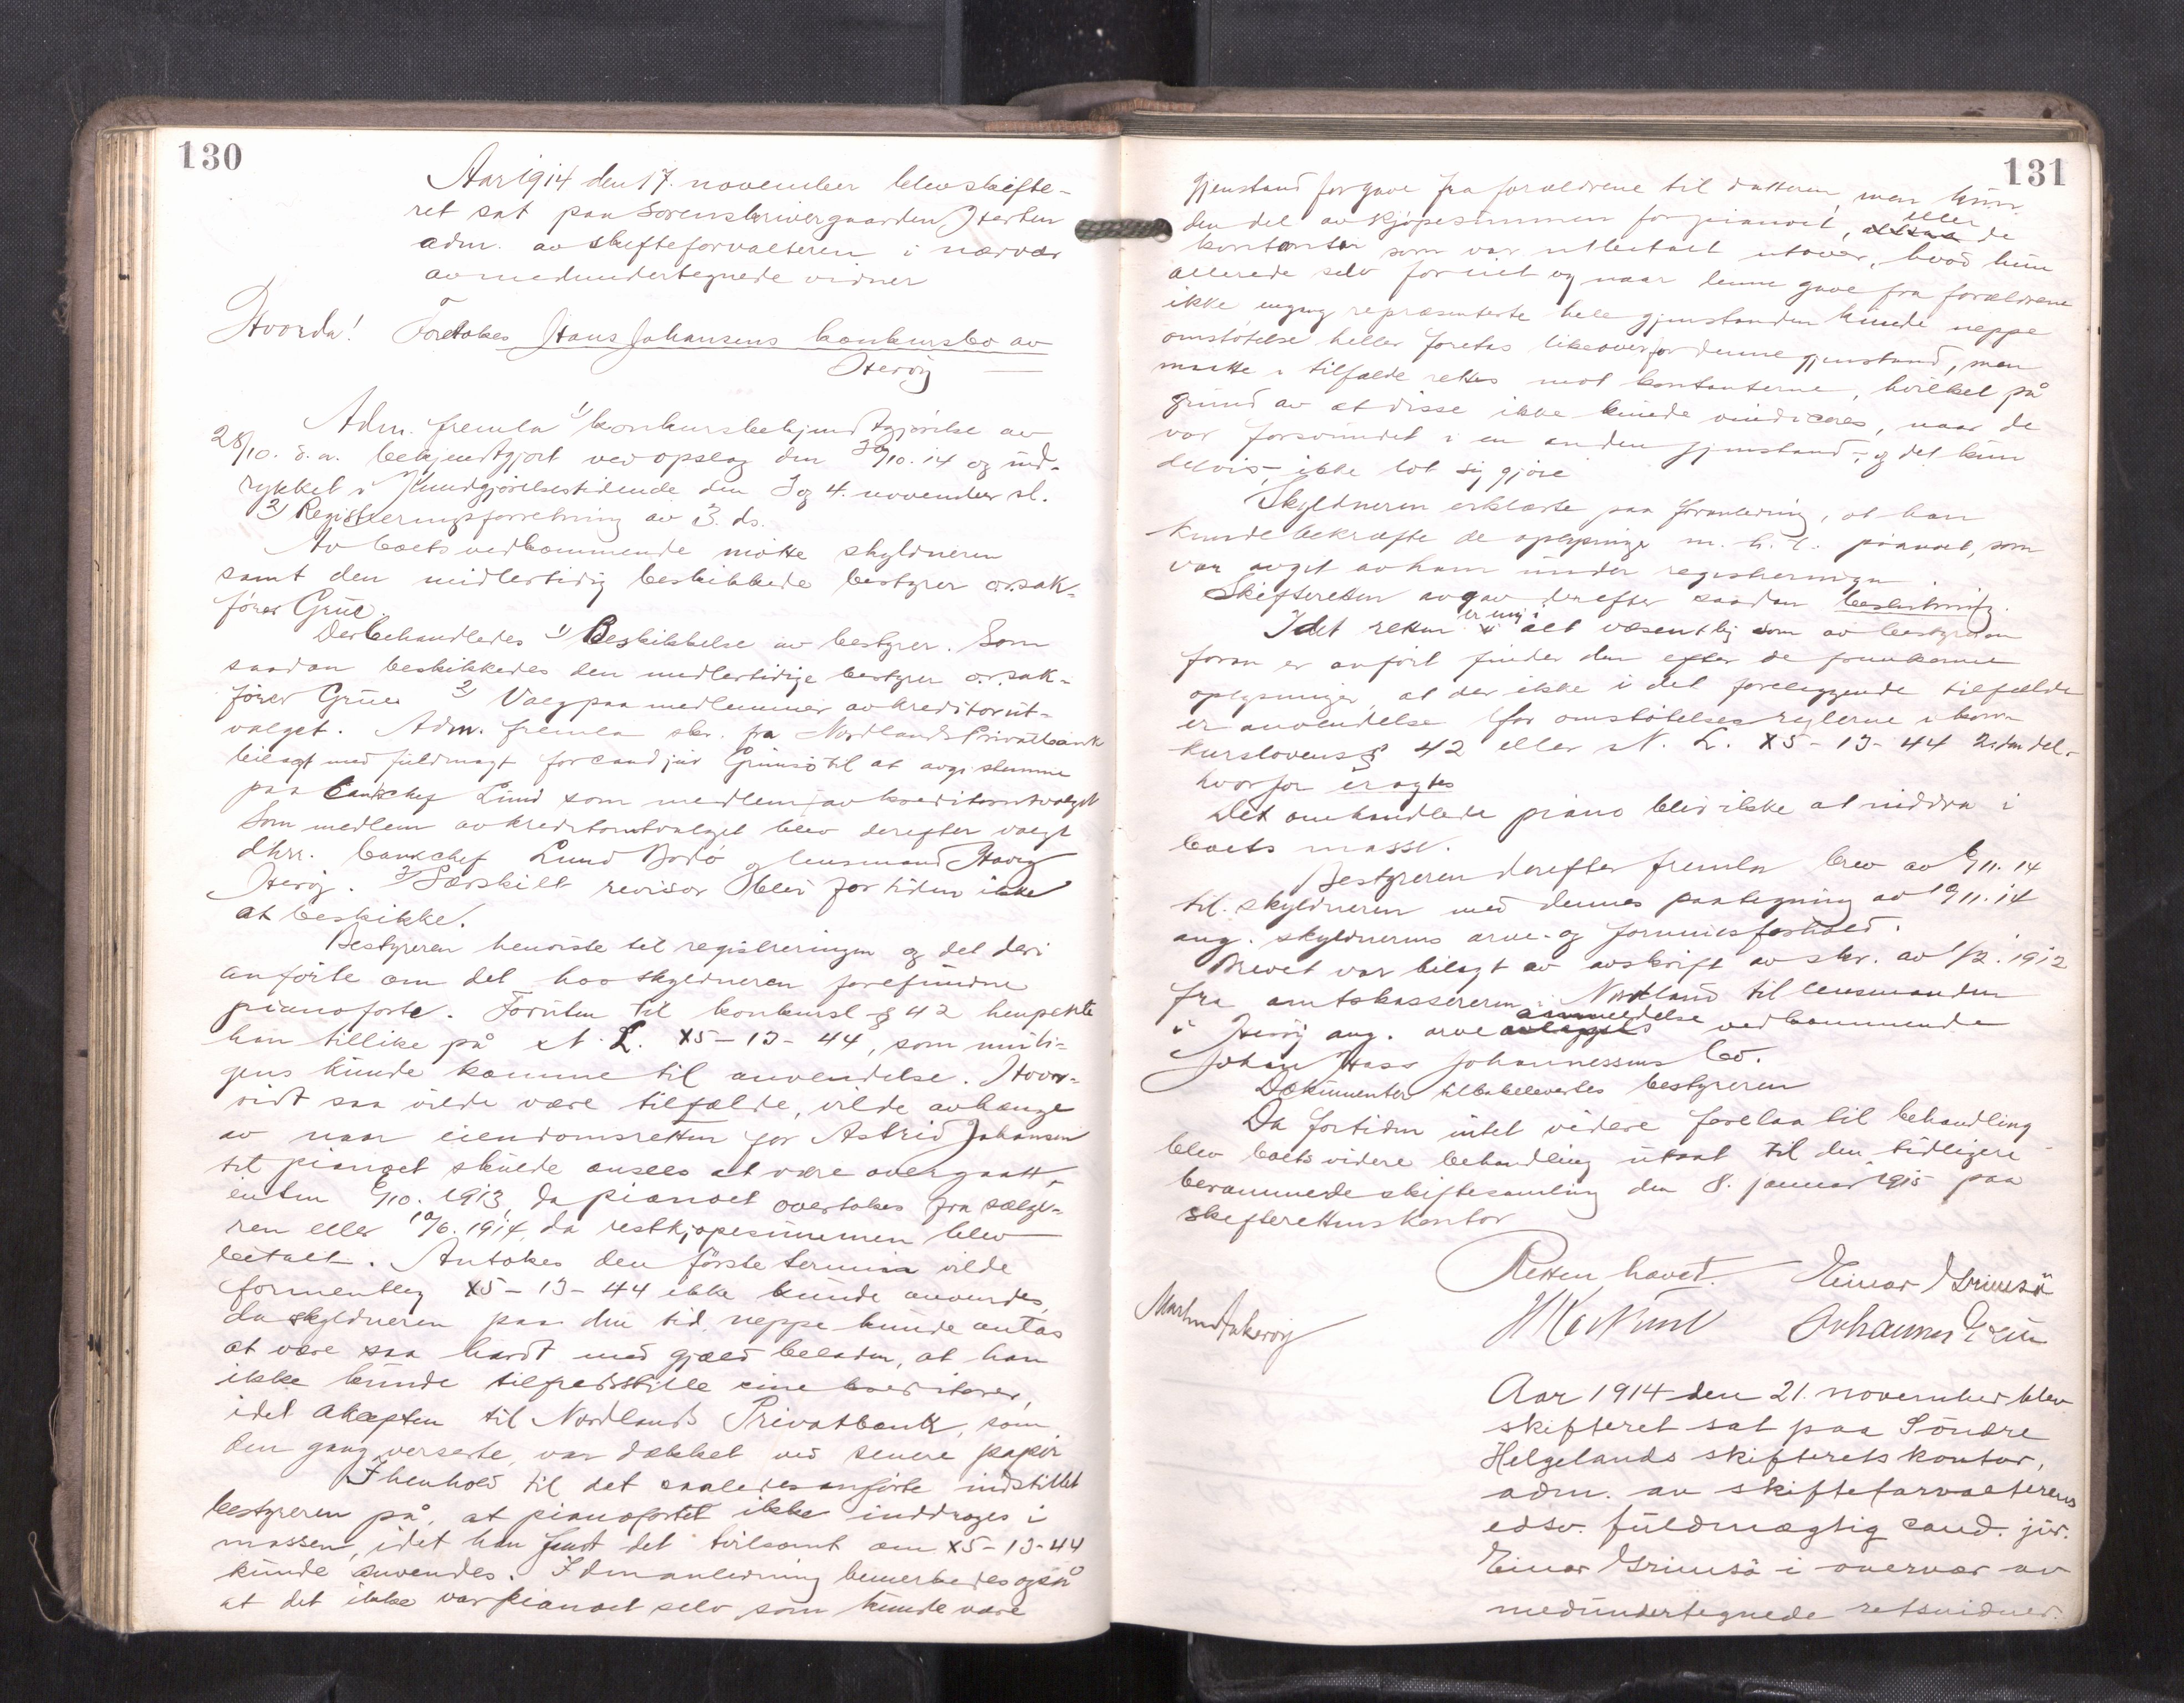 130
Aar 1914 den 17. november blev skifte-
ret sat paa sorenskrivergaarden
adm. av skifteforvalteren i nærvær
av medundertegnede vidner
Hvorda! Foretokes Hans Johansens konkursbo av
Herøy
Adm. fremla 1) konkursbekjendtgjørelse av
28/10. d. a. bekjendtgjort ved opslag den 30/10. 14 og ind-
rykket i Kundgjørelsestidende den 3 og 4. november sl.
2) Registreringsforretning av 3. ds.
Av boets vedkommende møtte skyldneren
samt den midlertidig beskikkede bestyrer o.r.sak-
fører Grüe.
Der behandledes 1) Beskikkelse av bestyrer. Som
saadan beskikkedes den midlertidige bestyrer o.r.sak-
fører Grüe 2) Valg paa medlemmer av kreditorut-
valget. Adm. fremla skr. fra Nordlands Privatbank
bilagt med fuldmagt for cand jur Grimsø til at avgi stemme
paa bankchef Lund som medlem av kreditorutvalget
Som medlem av kreditorutvalget blev derefter valgt
dhrr. bankchef Lund Bodø og lensmand Havig
Herøy. 3) Særskilt revisor blev for tiden ikke
at beskikke.
Bestyreren henviste til registreringen og det deri
anførte om det hos skyldneren forefundne
pianoforte. Foruten til konkursl § 42 henpekte
han tillike på N. L. X5-13-44, som muli-
gens kunde komme til anvendelse. Hvor-
vidt saa vilde være tilfælde, vilde avhænge
av naar eiendomsretten for Astrid Johansen
til pianoet skulde ansees at være overgaatt,
enten 6/10. 1913, da pianoet overtokes fra sælge-
ren eller 10/6. 1914, da restkjøpesummen blev
betalt. Antokes den første termin vilde
formentlig X5-13-44 ikke kunde anvendes,
da skyldneren paa den tid neppe kunde antas
at være saa hardt med gjæld beladen, at han
ikke kunde tilfredsstille sine kreditorer,
idet akcepten til Nordlands Privatbank, som
den gang verserte, var dækket ved senere papir
I henhold til det saaledes anførte indstillet
bestyreren på, at pianofortet ikke inddrages i
massen, idet han fandt det tvilsomt om X5-13-44
kunde anvendes. I den anledning bemerkedes også
at det ikke var pianoet selv, som kunde være
131
gjenstand for gave fra forældrene til datteren, men kun
den del av kjøpesummen for pianoet, eller de
kontanter som var utbetalt utover, hvad hun
allerede selv forut og naar denne gave fra forældrene
ikke engang repræsenterte hele gjenstanden kunde neppe
omstøtelse heller foretas likeoverfor denne gjenstand, men
maatte i tilfælde rettes mot kontanterne, hvilket på
grund av at disse ikke kunde vindiceres, naar de
var forsvundet i en anden gjenstand, og det kun
delvis, ikke lot sig gjøre
Skyldneren erklærte paa foranledning, at han
kunde bekræfte de oplysninger m. h. t. pianoet, som
var avgit av ham under registreringen.
Skifteretten avgav derefter saadan beslutning.
Idet retten er enig i alt væsentlig som av bestyreren
foran er anført finder den efter de fremkomne
oplysninger, at der ikke i det foreliggende tilfælde
er anvendelse for omstøtelsesreglerne i kon-
kurslovens § 42 eller N. L. X5-13-44 2den del-
hvorfor eragtes
Det omhandlede piano blir ikke at inddra i
boets masse.
Bestyreren derefter fremla brev av 6/11. 14
til skyldneren med dennes paategning av 10/11. 14
ang. skyldnerens arve- og formuesforhold.
Brevet var bilagt av avskrift av skr. av 1/2. 1912
fra amtskassereren i Nordland til lensmanden
i Herøy ang. arveanmeldelse vedkommende
Johan Hass Johannessens bo.
Dokumenter tilbakelevertes bestyreren
Da fortiden intet videre forelaa til behandling
blev boets videre behandling utsat til den tidligere
berammede skiftesamling den 8. januar 1915 paa
skifterettens kontor
Retten hævet. Einar Grimsø
Johannes Grüe
Aar 1914 den 21. november blev
skifteret sat paa Söndre
Helgelands skifterets kontor,
adm. av skifteforvalterens
edsv. fuldmægtig cand. jur.
Einar Grimsö i overvær av
medundertegnede retsvidner.